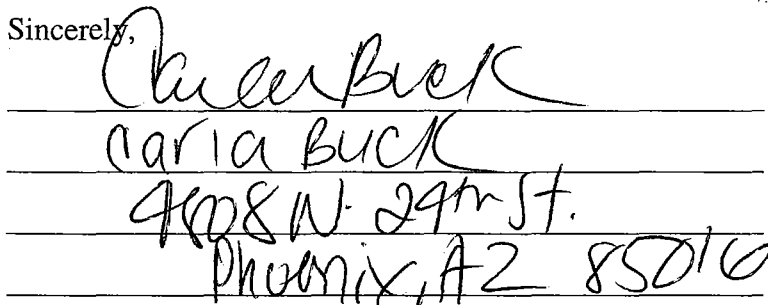 Sincerely,
Carla Buck
Carla Buck
4808 N. 24th St.
Phoenix, AZ 85016